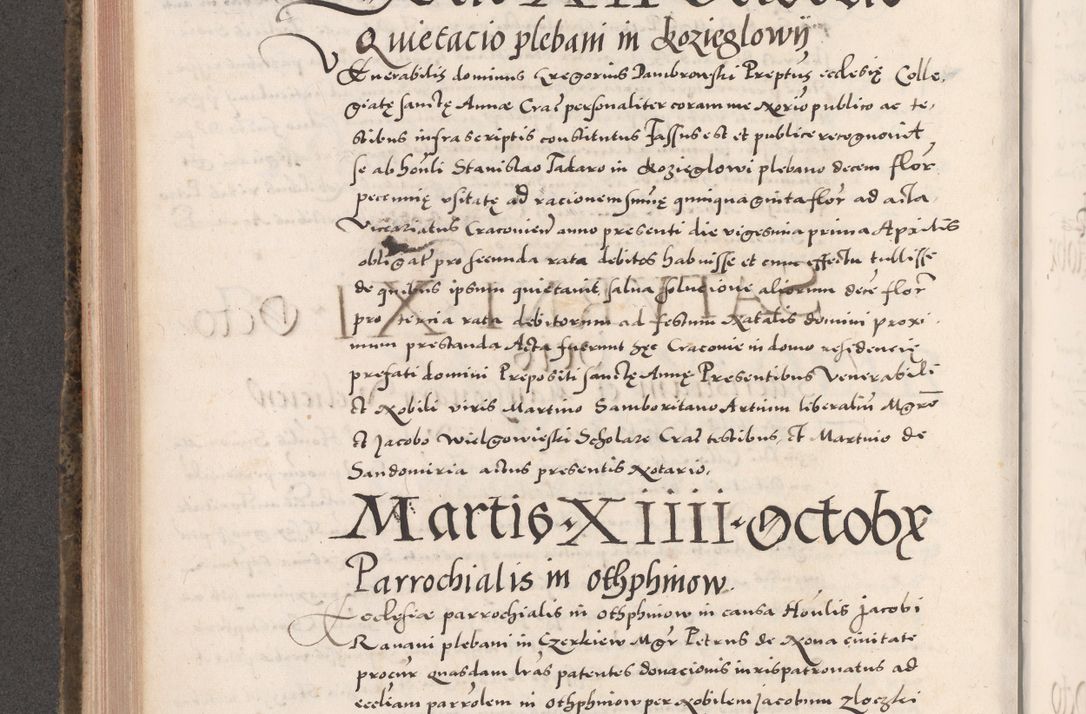 Quietacio plebani in Kozieglowij
Venerabilis dominus Gregorius Dambrowski Preptus ecclesię Colle,
giatę sanctę Annae Crac personaliter coram me Notrio publico ac te,
stibus infrascriptis constitutus Fassus est et publice recognovit
se ab honli Stanislao Takaro in Kozieglowi plebano decem flor
pecunię usitatę ad racionem sumę quinquaginta flor ad acta
Vicariatus Cracovien anno presenti die vigesima prima Aprilis
obligat pro secunda rata debitos habuisse et cum effectu tullisse
de quibus ipsum quietavit, salva solucione aliorum dece flor
pro tercia rata debitorum ad festum Natalis domini proxi
mum prestanda Acta fuerunt hęc Cracovie in domo residencię
prefati domini Prepositi sanctę Annę Presentibus Venerabili
et Nobili viris Martino Samboritano Artium liberaliu Mgro
et Jacobo Wielgowieski Scholare Crac testibus, et Martino de
Sandomiria actus presentis Notario,
Martis XIIII Octobr
Parrochialis in Othphinow
Ecclesiae parrochialis in Othphiniow in causa Honlis Jacobi
Kanani plebani in Czerkiew Mgr Petrus de Nova civitate
procur quasdam lras patentes donacionis iurispatronatus ad
eccliam parrolem in Othphiniow per Nobilem Jacobum Zloczki